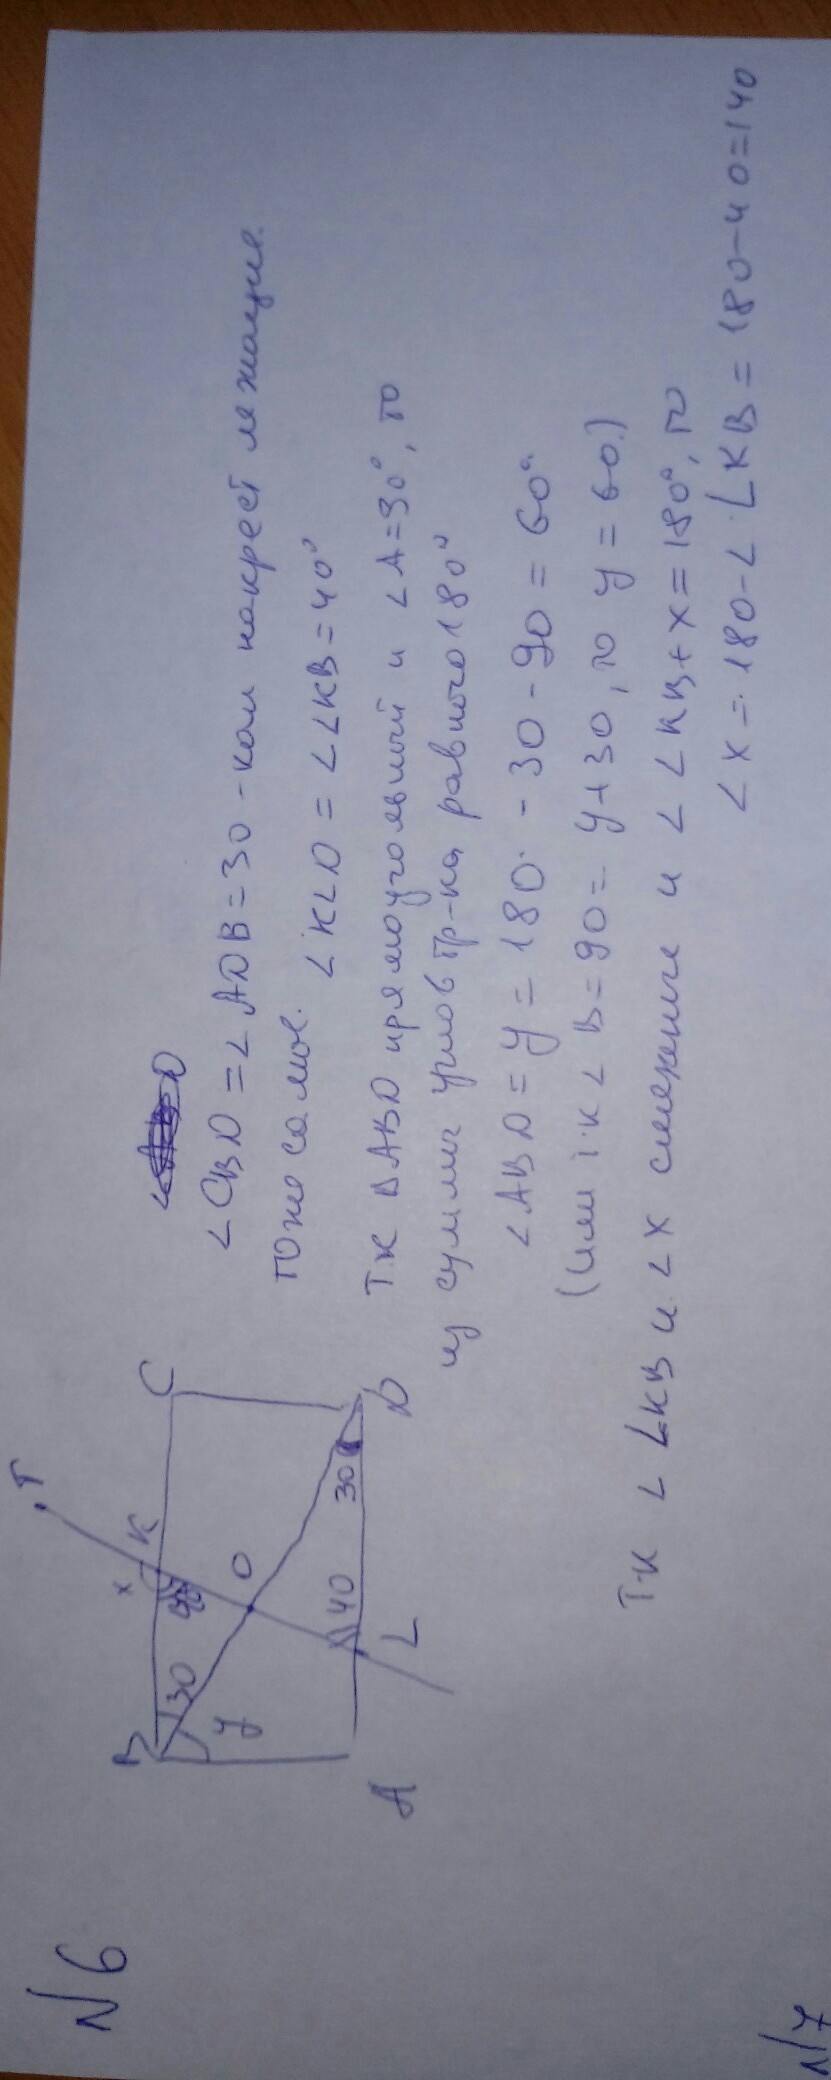 N6
B
C
A
D
K
T
O
L
x
y
30
40
30
∠CBD = ∠ADB = 30 - как накрест лежащие.
тоже самое. ∠KLD = ∠LKB = 40°
Т.к ΔABD прямоугольный и ∠A = 30°, то
из суммы углов тр-ка равного 180°
∠ABD = y = 180 - 30 - 90 = 60°
(или т.к ∠B = 90 = y + 30, то y = 60.)
Т.к ∠LKB и ∠x смежные и ∠LKB + x = 180°, то
∠x = 180 - ∠LKB = 180 - 40 = 140
N7